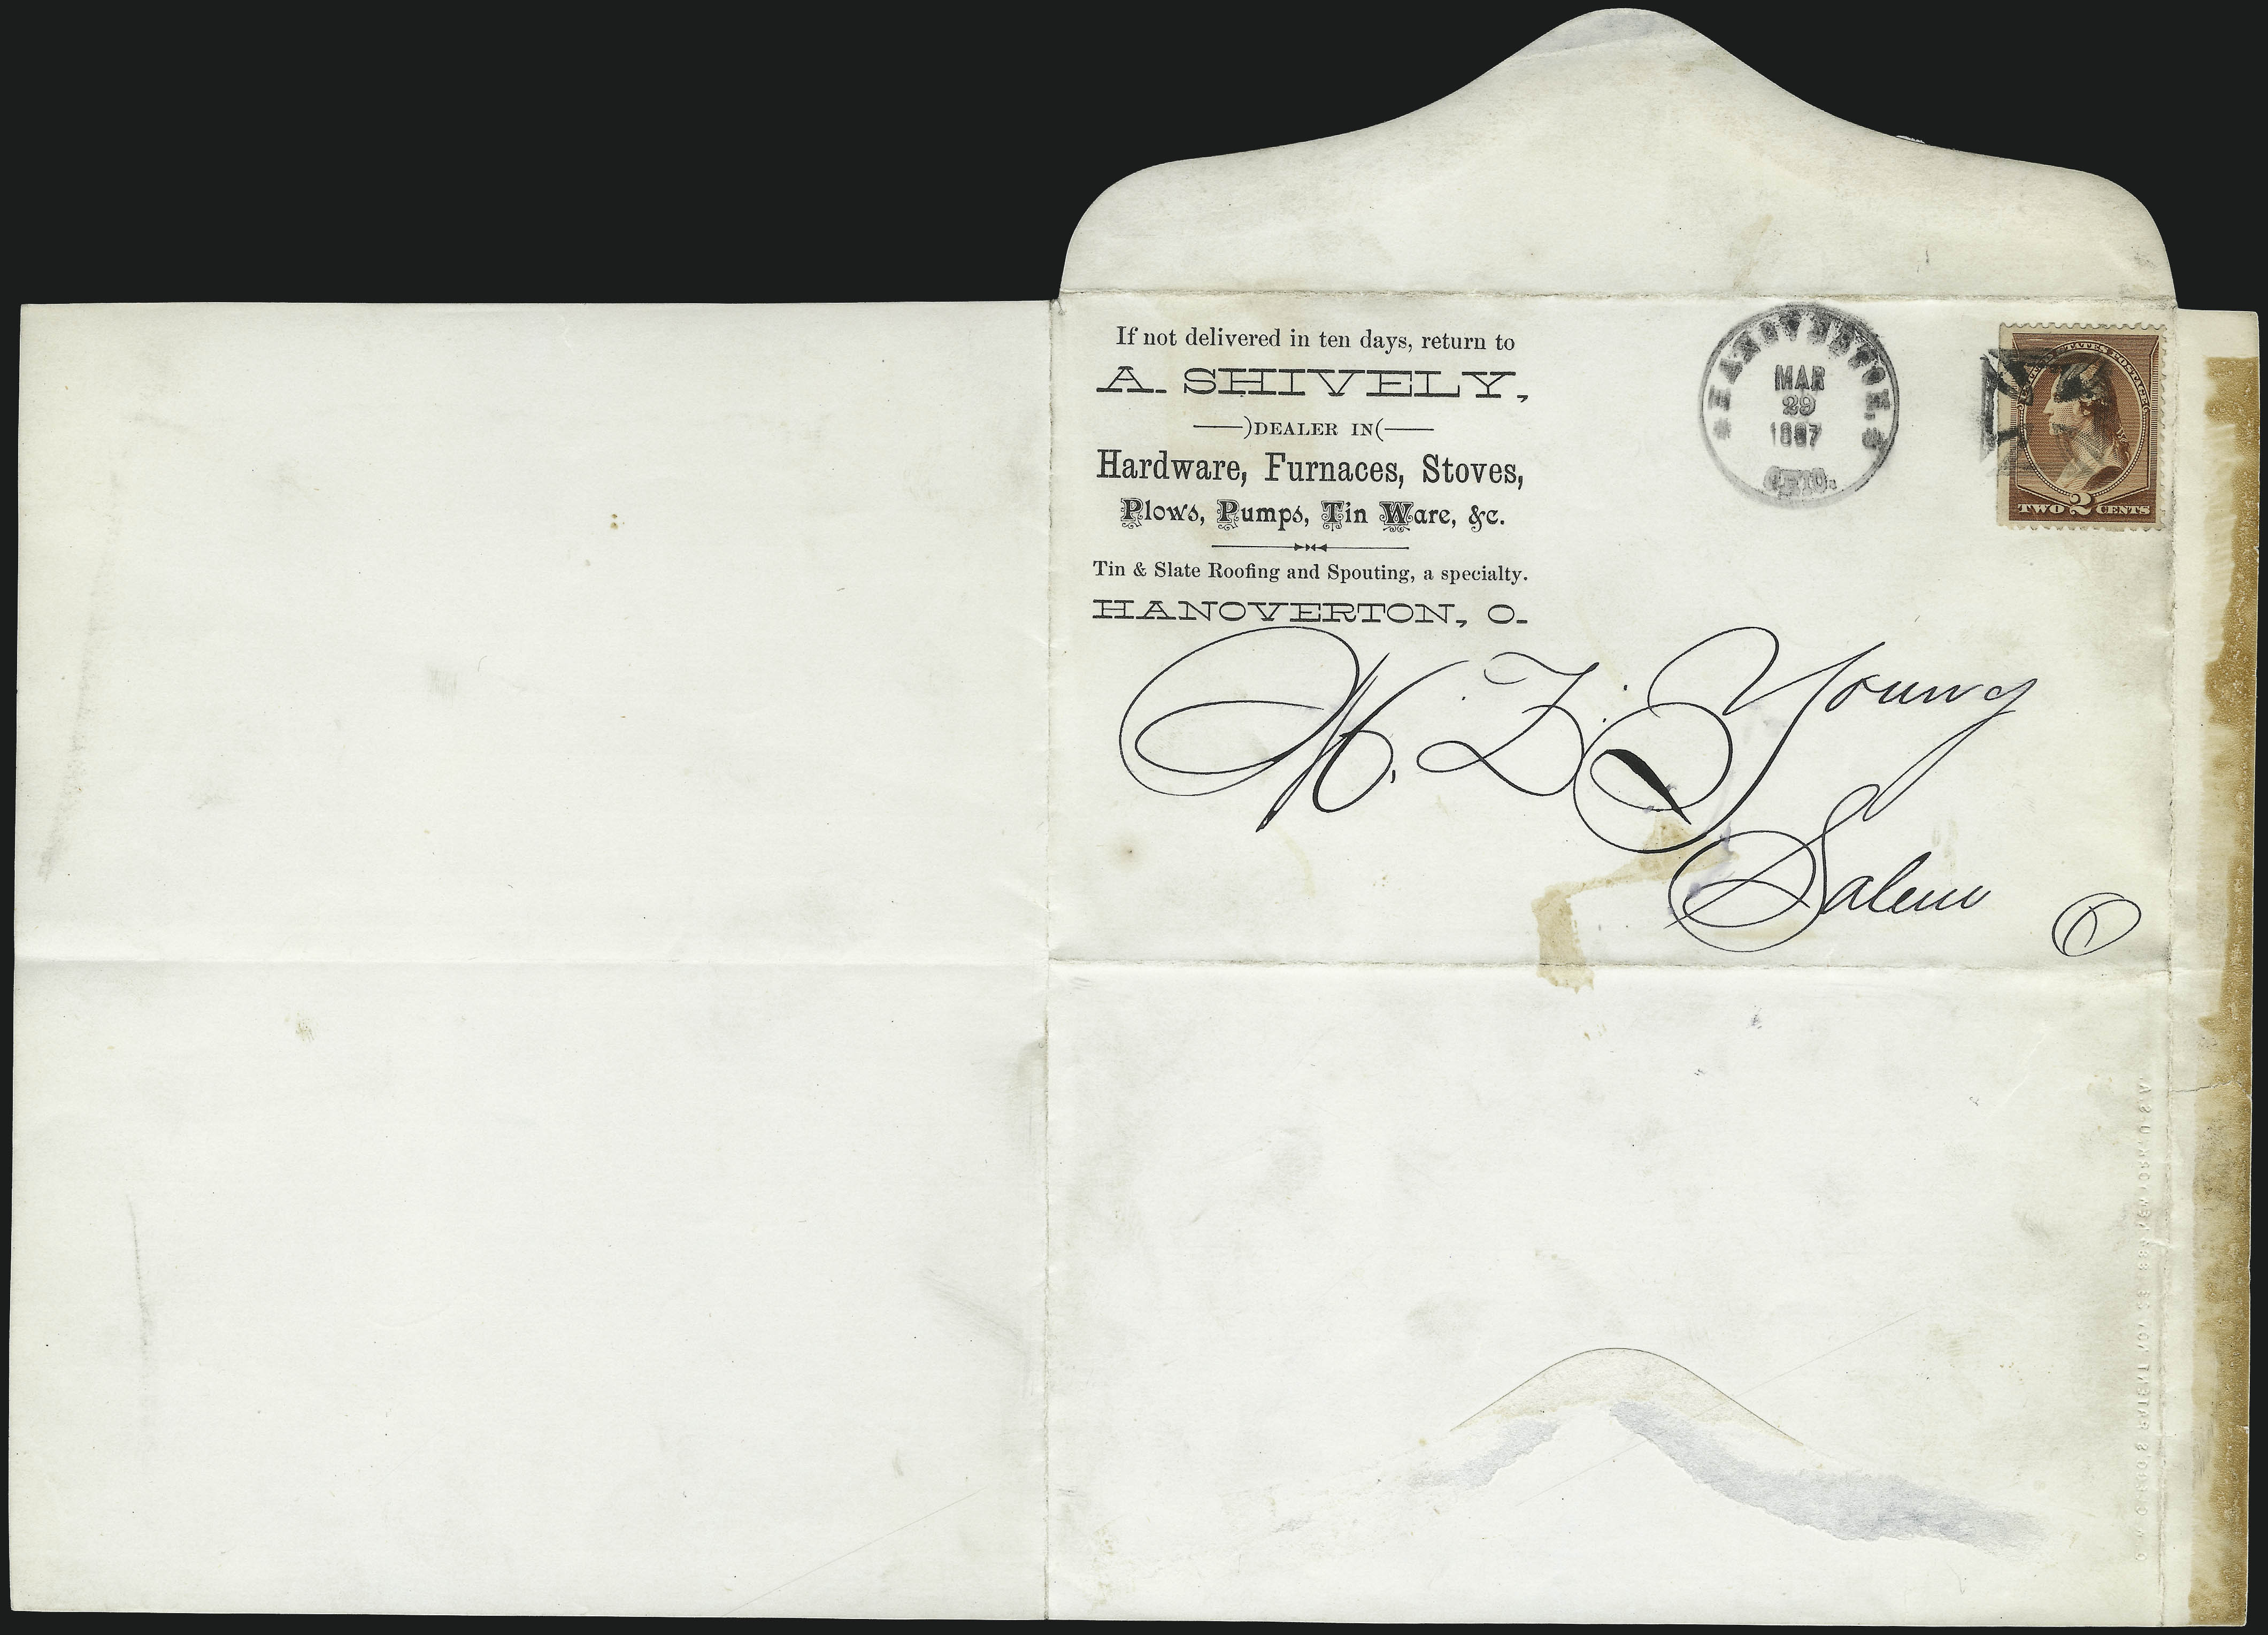 If not delivered in ten days, return to
A. SHIVELY,
)DEALER IN(
Hardware, Furnaces, Stoves,
Plows, Pumps, Tin Ware, &c.
Tin & Slate Roofing and Spouting, a specialty.
HANOVERTON, O.
HANOVERTON.
MAR
29
1887
OHIO.
UNITED STATES POSTAGE
TWO 2 CENTS
Young
Salem
O